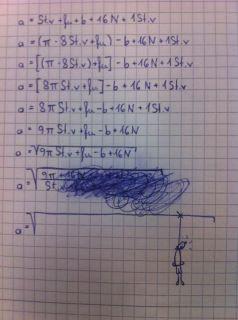 a = St.v + fu + b + 16N + 1St.v
a = (π - 8St.v + fu) - b + 16N + 1St.v
a = [(π - 8St.v) + fu] - b + 16N + 1St.v
a = [8πSt.v + fu] - b + 16N + 1St.v
a = 8πSt.v + fu - b + 16N + 1St.v
a = 9πSt.v + fu - b + 16N
a = √9πSt.v + fu - b + 16N
a = √
a = √